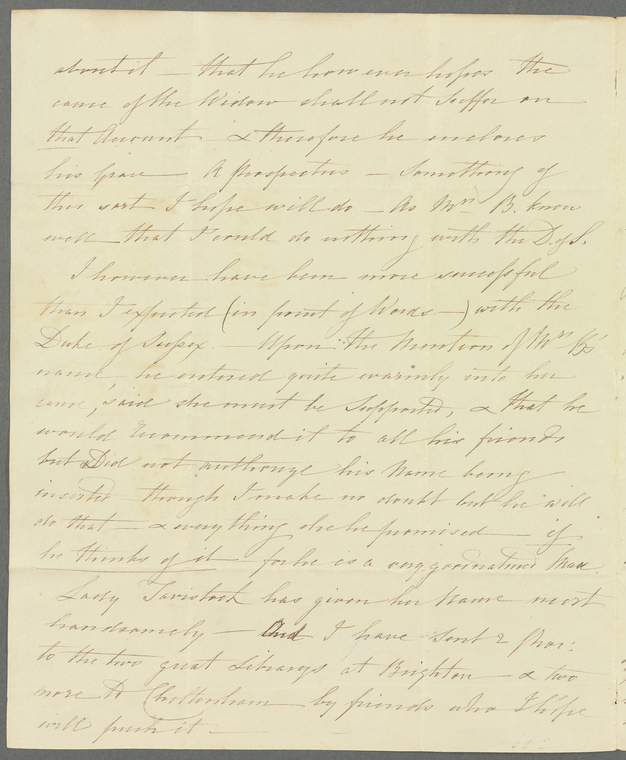 about it — that he however hopes the
cause of the Widow shall not suffer on
that Account & therefore he encloses
his Grace A Prospectus — Something of
this sort I hope will do — As Mrs. B. knows
well that I could do nothing with the D. of S.
I however have been more successful
than I expected (in point of Words —) with the
Duke of Sussex — Upon the Mention of Mrs B's
name, he entered quite warmly into her
cause, said she must be supported, & that he
would recommend it to all his friends
but Did not authorize his Name being
inserted though I make no doubt but he will
do that — & everything else he promised — if
he thinks of it for he is a very goodnatured Man
Lady Tavistock has given her Name most
handsomely — And I have sent 2
to the two great Librarys at Brighton — & two
more to Cheltenham — by friends who I hope
will push it —